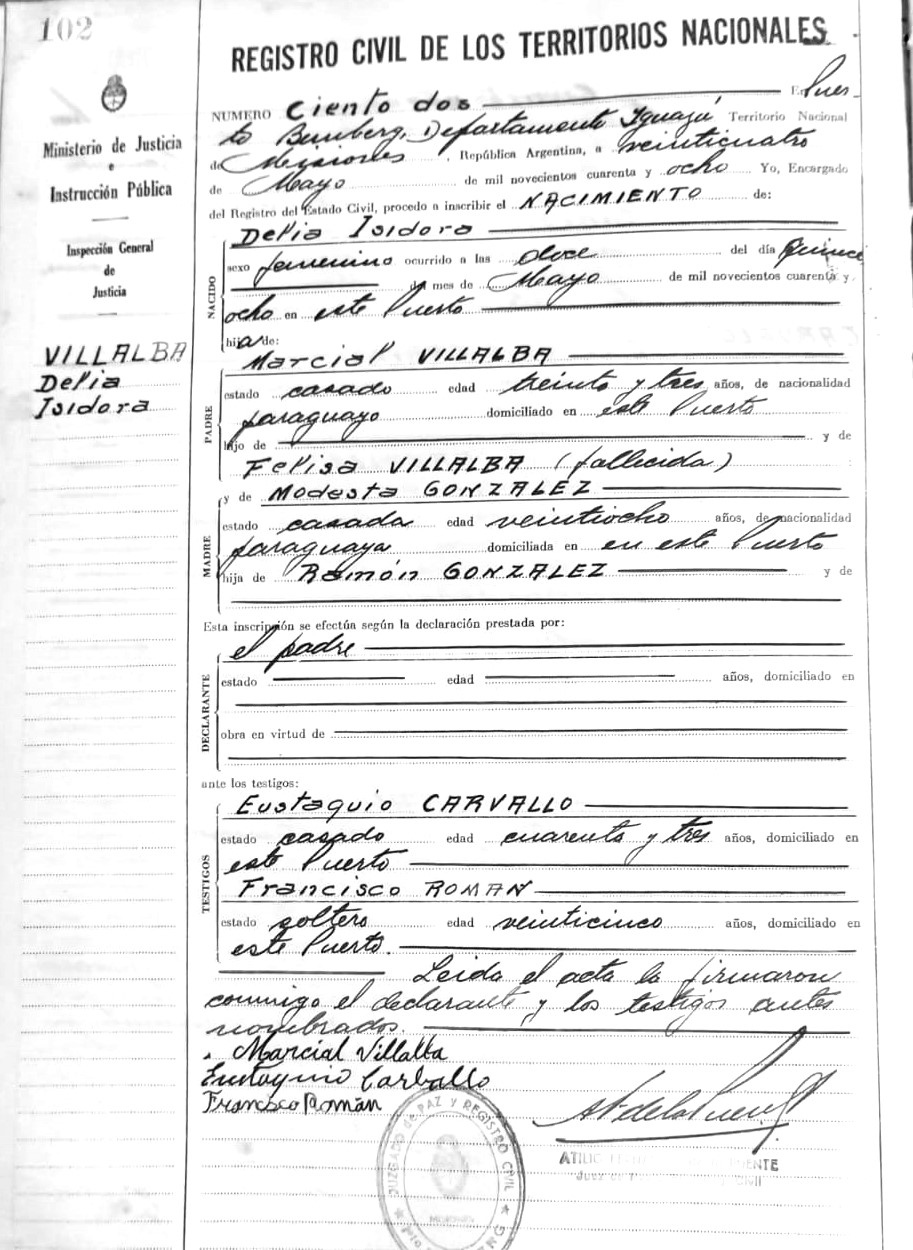 102
REGISTRO CIVIL DE LOS TERRITORIOS NACIONALES
Ministerio de Justicia
e
Instrucción Pública
Inspección General
de
Justicia
VILLALBA
Delia
Isidora
NUMERO Ciento dos En Puer
to Bemberg, Departamento Iguazú Territorio Nacional
de Misiones, República Argentina, a veinticuatro
de Mayo de mil novecientos cuarenta y ocho Yo, Encargado
del Registro del Estado Civil, procedo a inscribir el NACIMIENTO de:
NACIDO
Delia Isidora
sexo femenino ocurrido a las doce del día quince
de mes de Mayo de mil novecientos cuarenta y
ocho en este Puerto
hija de:
PADRE
Marcial VILLALBA
estado casado edad treinta y tres años, de nacionalidad
paraguayo domiciliado en este Puerto
hijo de y de
Felisa VILLALBA (fallecida)
MADRE
y de Modesta GONZALEZ
estado casada edad veintiocho años, de nacionalidad
paraguaya domiciliada en en este Puerto
hija de Ramón GONZALEZ y de
Esta inscripción se efectúa según la declaración prestada por:
DECLARANTE
el padre
estado edad años, domiciliado en
obra en virtud de
ante los testigos:
TESTIGOS
Eustaquio CARVALLO
estado casado edad cuarenta y tres años, domiciliado en
este Puerto
Francisco ROMAN
estado soltero edad veinticinco años, domiciliado en
este Puerto.
Leida el acta la firmaron
conmigo el declarante y los testigos antes
nombrados.
Marcial Villalba
Eustaquio Carballo
Francisco Román
JUZGADO de PAZ Y REGISTRO CIVIL
ATILIO